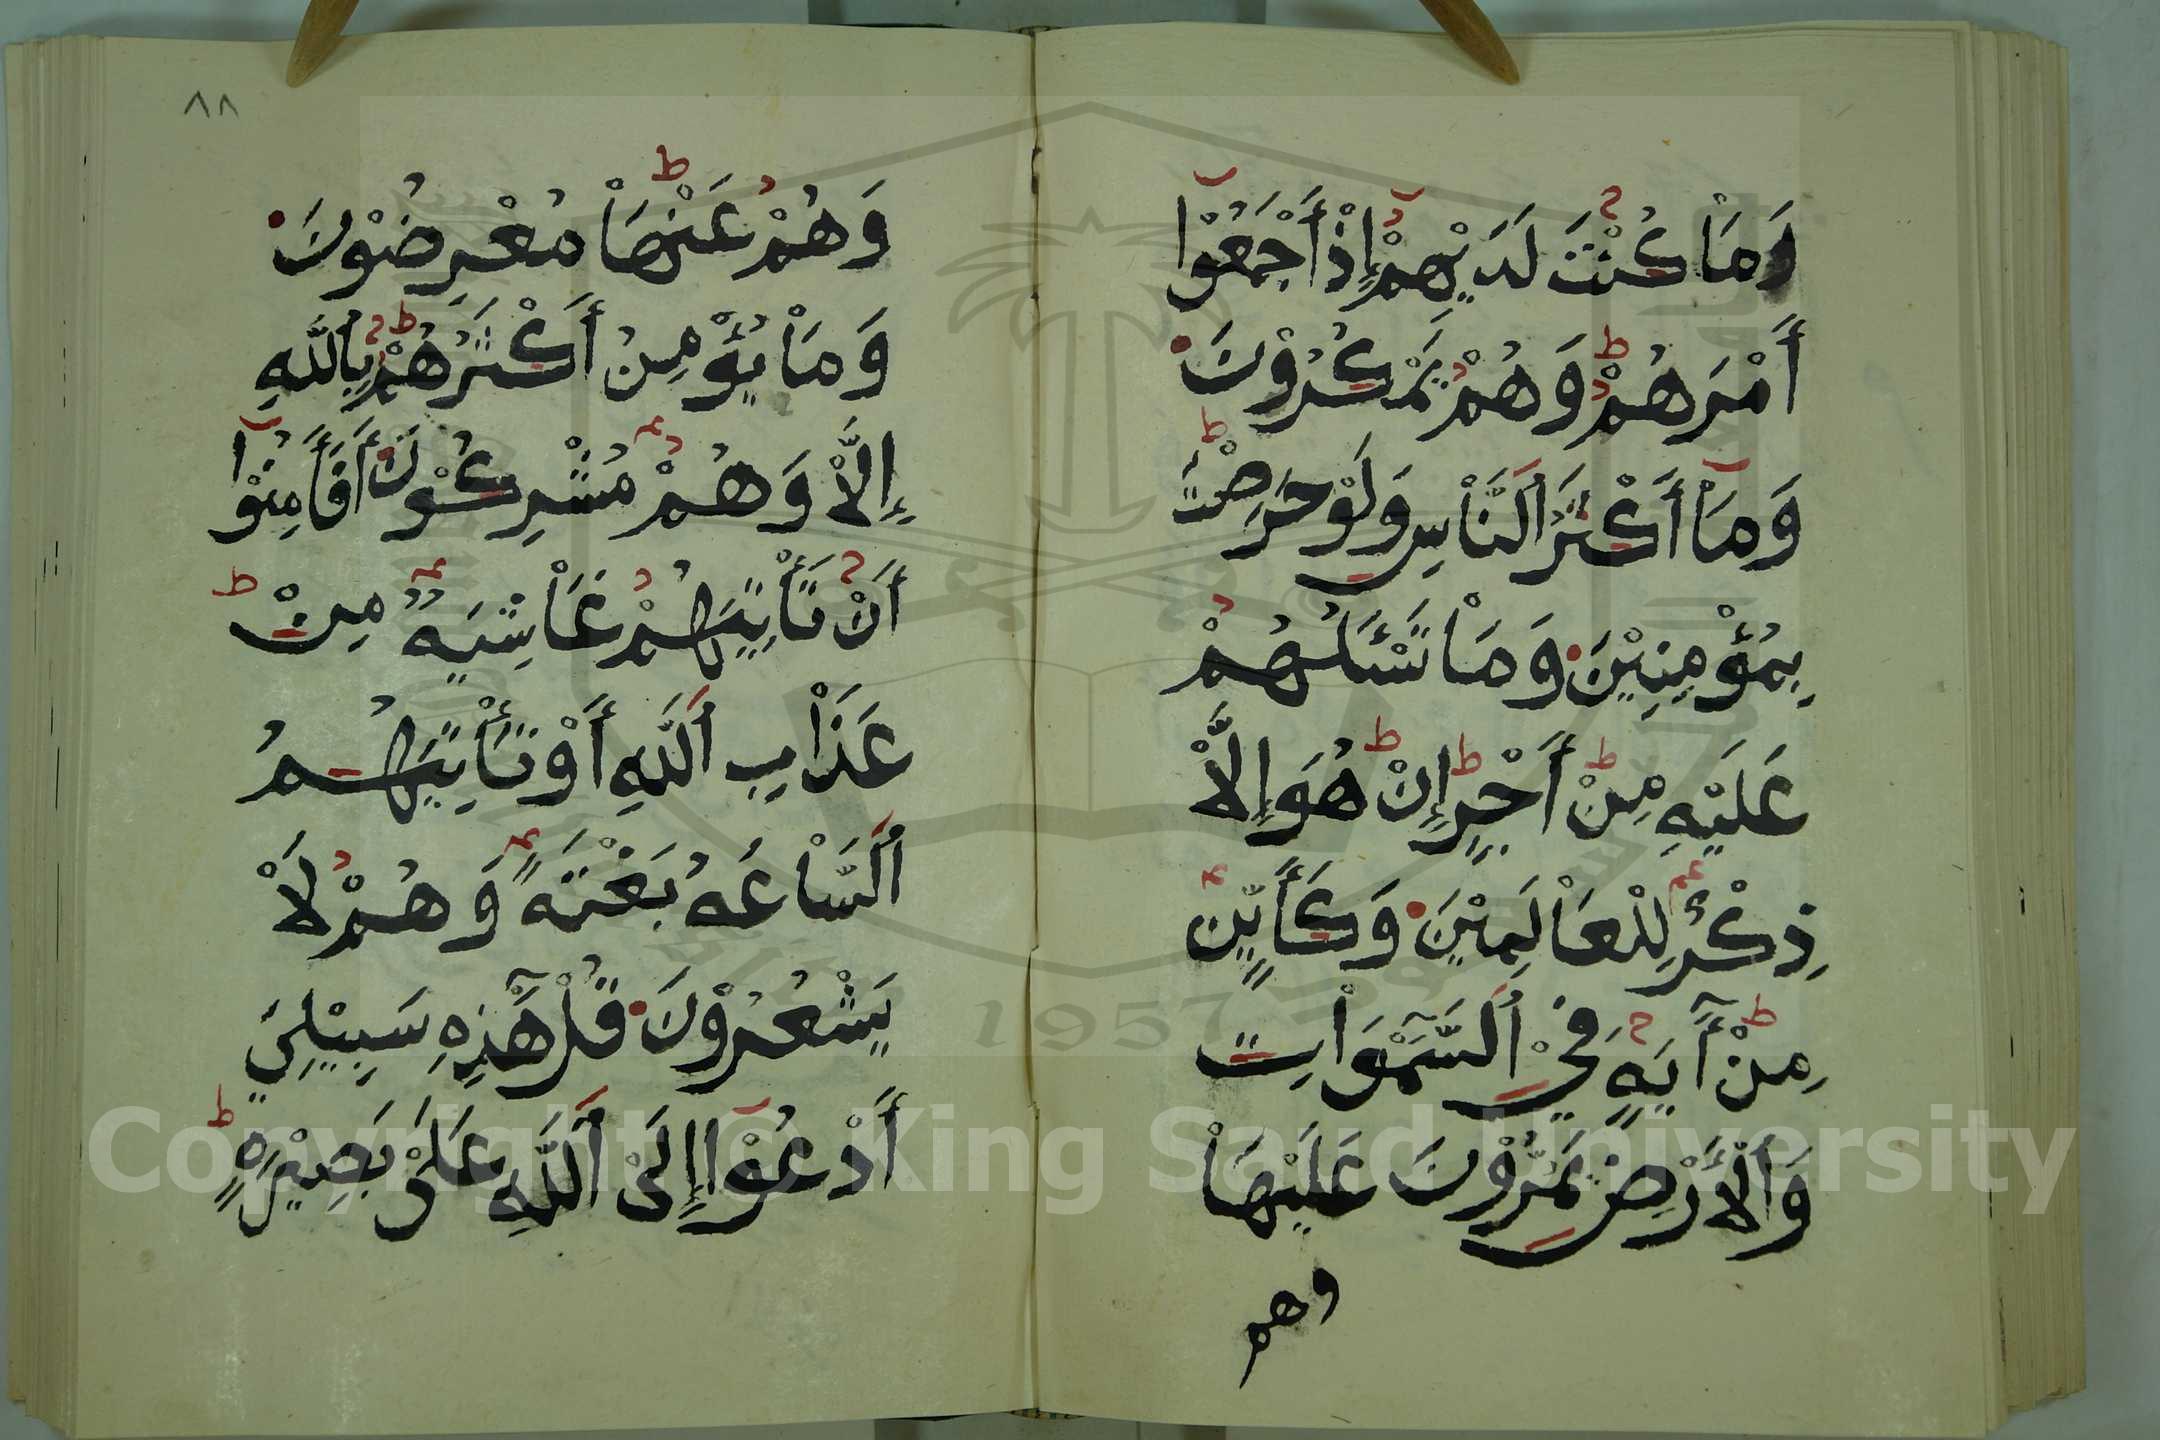 وَمَاْ كُنْتَ لَدَيْهِمْ إِذْ أَجْمَعُوْا
أَمْرَهُمْ وَهُمْ يَمْكُرُوْنَ
وَمَاْ أَكْثَرُ اَلنَّاْسِ وَلَوْ حَرَصْتَ
بِمُؤْمِنِيْنَ وَمَاْ تَسْـَٔلُهُمْ
عَلَيْهِ مِنْ أَجْرٍ إِنْ هُوَ إِلاَّْ
ذِكْرٌ لِلْعَاْلَمِيْنَ وَكَأَيِّنْ
مِنْ أٓيَةٍ فِيْ اَلسَّمٰوَاْتِ
وَاَلْأَرْضِ يَمُرُّوْنَ عَلَيْهَاْ
وهم
٨٨
وَهُمْ عَنْهَاْ مُعْرِضُوْنَ
وَمَاْ يُؤْمِنُ أَكْثَرُهُمْ بِاُللَّهِ
إِلاَّْ وَهُمْ مُشْرِكُوْنَ أَفَأَمِنُوْا
أَنْ تَأْتِيَهُمْ غَاْشِيَةٌ مِنْ
عَذَاْبِ اَللَّهِ أَوْ تَأْتِيَهُمُ
اَلسَّاْعَةُ بَغْتَةً وَهُمْ لاَْ
يَشْعُرُوْنَ قُلْ هٰذِهِ سَبِيْلِيَ
أَدْعُوْا إِلَىْ اَللَّهِ عَلَىْ بَصِيْرَةٍ
1957
Copyright © King Saud University